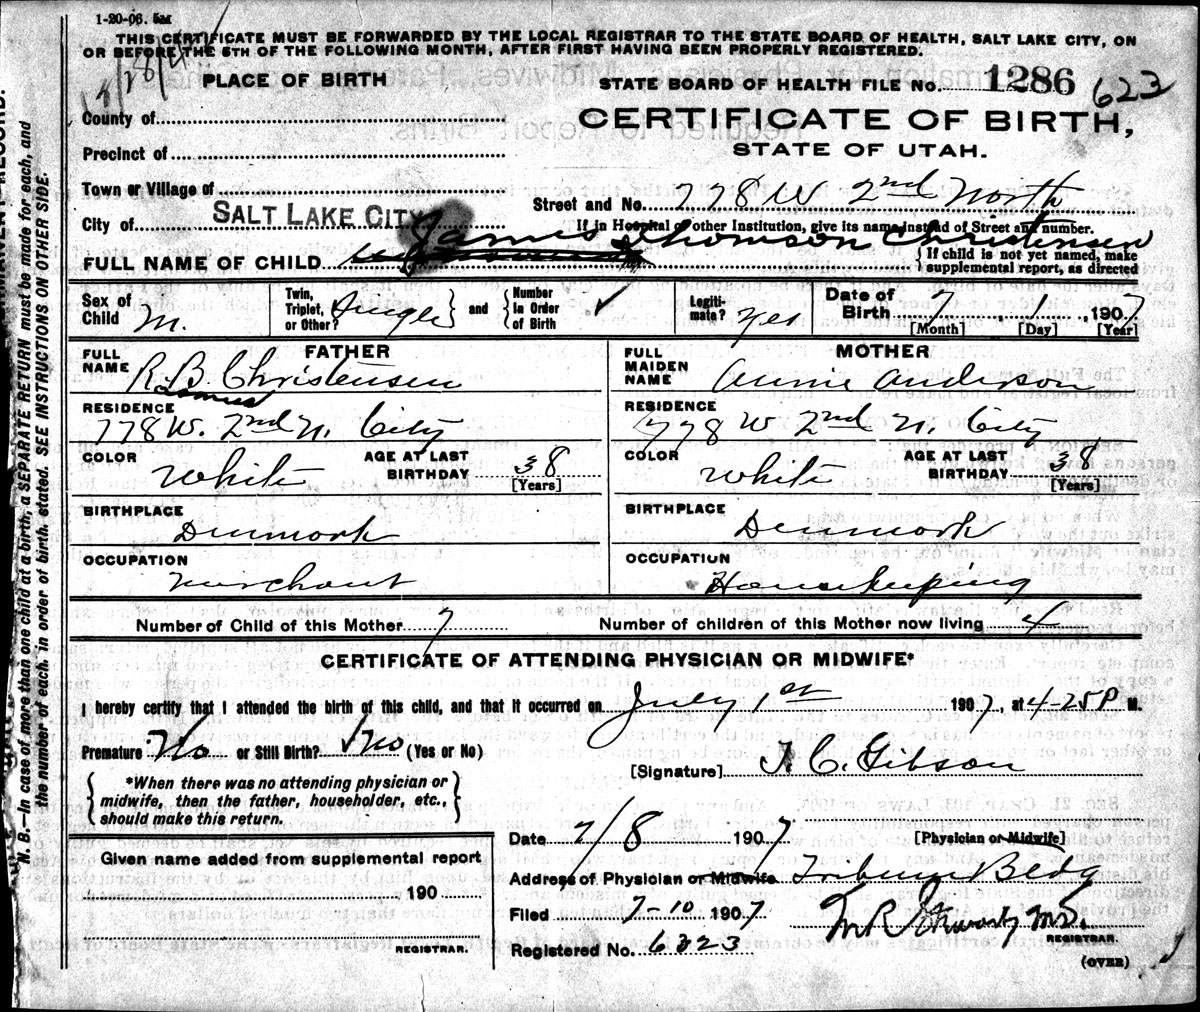 1-20-06. 5M
THIS CERTIFICATE MUST BE FORWARDED BY THE LOCAL REGISTRAR TO THE STATE BOARD OF HEALTH, SALT LAKE CITY, ON
OR BEFORE THE 5TH OF THE FOLLOWING MONTH, AFTER FIRST HAVING BEEN PROPERLY REGISTERED.
PLACE OF BIRTH
STATE BOARD OF HEALTH FILE No. 1286 623
County of
CERTIFICATE OF BIRTH,
Precinct of
STATE OF UTAH.
Town or Village of
Street and No. 778 W 2nd North
City of SALT LAKE CITY
If in Hospital or other Institution, give its name instead of Street and number.
FULL NAME OF CHILD James Thomson Christensen
If child is not yet named, make
supplemental report, as directed
Sex of Child M.
Twin, Triplet, or Other? Single and Number in Order of Birth
Legitimate? Yes
Date of Birth 7 1 1907
[Month] [Day] [Year]
FATHER
FULL NAME R. B. Christensen
RESIDENCE 778 W. 2nd N. City
COLOR White
AGE AT LAST BIRTHDAY 38
[Years]
BIRTHPLACE Denmark
OCCUPATION Merchant
MOTHER
FULL MAIDEN NAME Annie Anderson
RESIDENCE 778 W 2nd N. City
COLOR White
AGE AT LAST BIRTHDAY 38
[Years]
BIRTHPLACE Denmark
OCCUPATION Housekeeping
Number of Child of this Mother 7
Number of children of this Mother now living 4
CERTIFICATE OF ATTENDING PHYSICIAN OR MIDWIFE*
I hereby certify that I attended the birth of this child, and that it occurred on July 1st 1907, at 4-25 P M.
Premature No or Still Birth? No (Yes or No)
[Signature] J. C. Gibson
*When there was no attending physician or
midwife, then the father, householder, etc.,
should make this return.
[Physician or Midwife]
Date 7/8 1907
Given name added from supplemental report
190
REGISTRAR.
Address of Physician or Midwife Tribune Bldg
Filed 7-10 1907
M.D.
REGISTRAR.
Registered No. 6323
(OVER)
N. B.—In case of more than one child at a birth, a SEPARATE RETURN must be made for each, and
the number of each, in order of birth, stated. SEE INSTRUCTIONS ON OTHER SIDE.